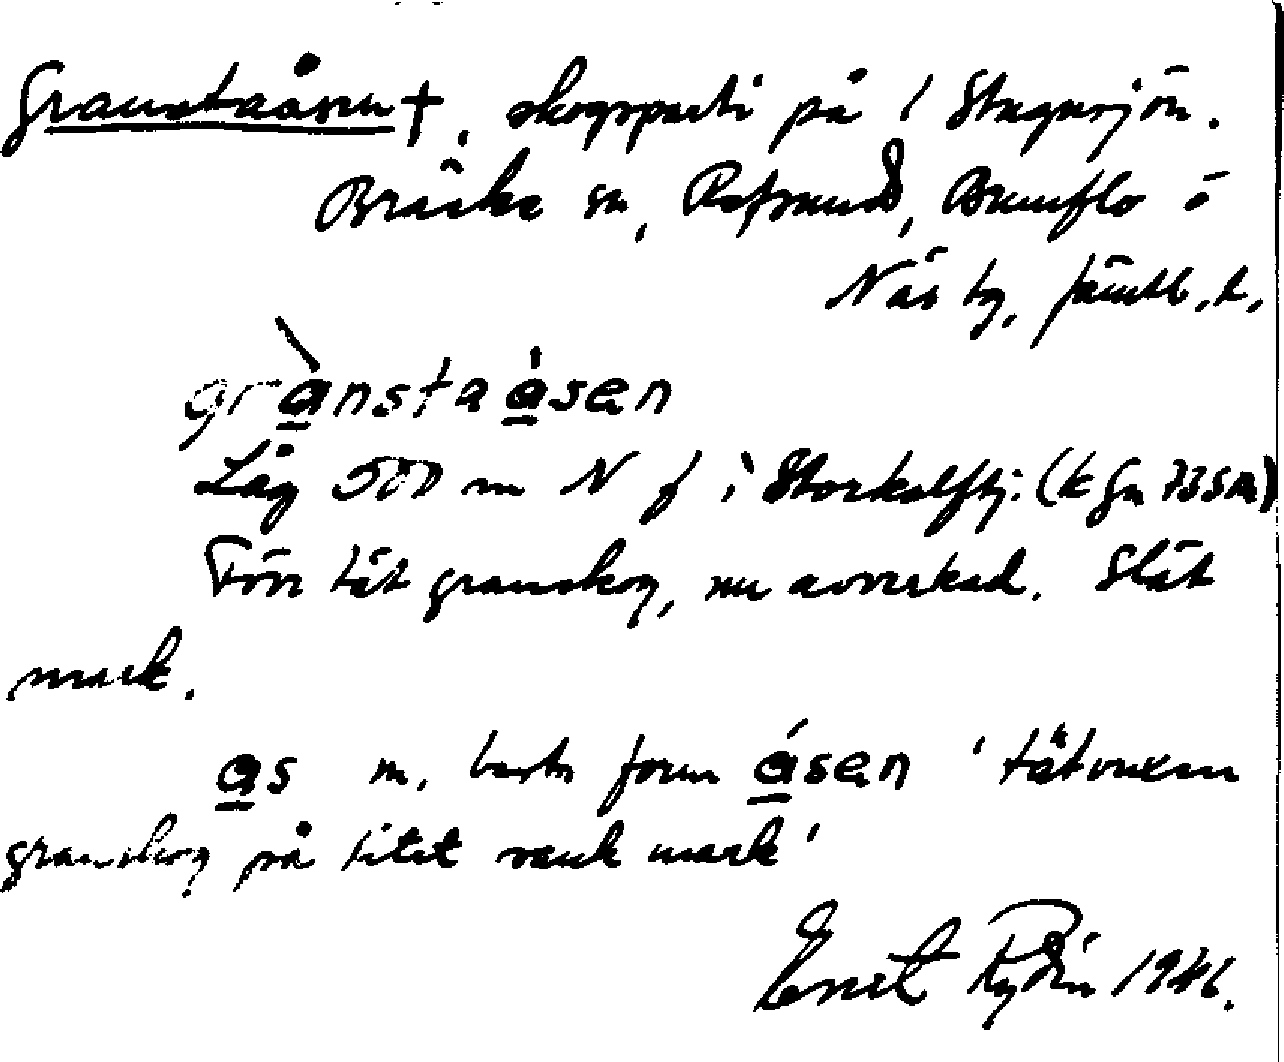 Granstaåsen †, skogsparti på / Stugusjön.
Bräcke sn, Refsund, Brunflo o
Näs tg, Jämtl. l.
grànstaåsen
Låg 500 m N f i Storkalftj: (k fn 735m)
Förr tät granskog, nu avverkad. Slät
mark.
as m, best form åsen 'tätvuxen
granskog på litet vank mark'
Ernst Rydin 1946.